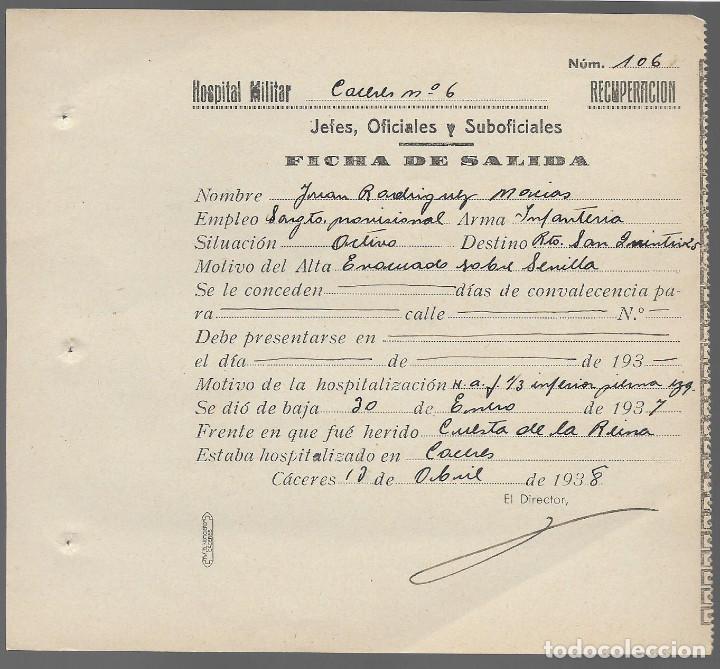 Núm. 106
Hospital Militar Caceres nº 6 RECUPERACION
Jefes, Oficiales y Suboficiales
FICHA DE SALIDA
Nombre Juan Rodriguez Macias
Empleo Sargto. provisional Arma Infanteria
Situación Activo Destino Rto. San Quintin
Motivo del Alta Evacuado sobre Sevilla
Se le conceden días de convalecencia pa-
ra calle N.º
Debe presentarse en
el día de de 193
Motivo de la hospitalización H. a. f. 1/3 inferior pierna izq.
Se dió de baja 30 de Enero de 1937
Frente en que fué herido Cuesta de la Reina
Estaba hospitalizado en Caceres
Cáceres de Abril de 1938
El Director,
todocoleccion